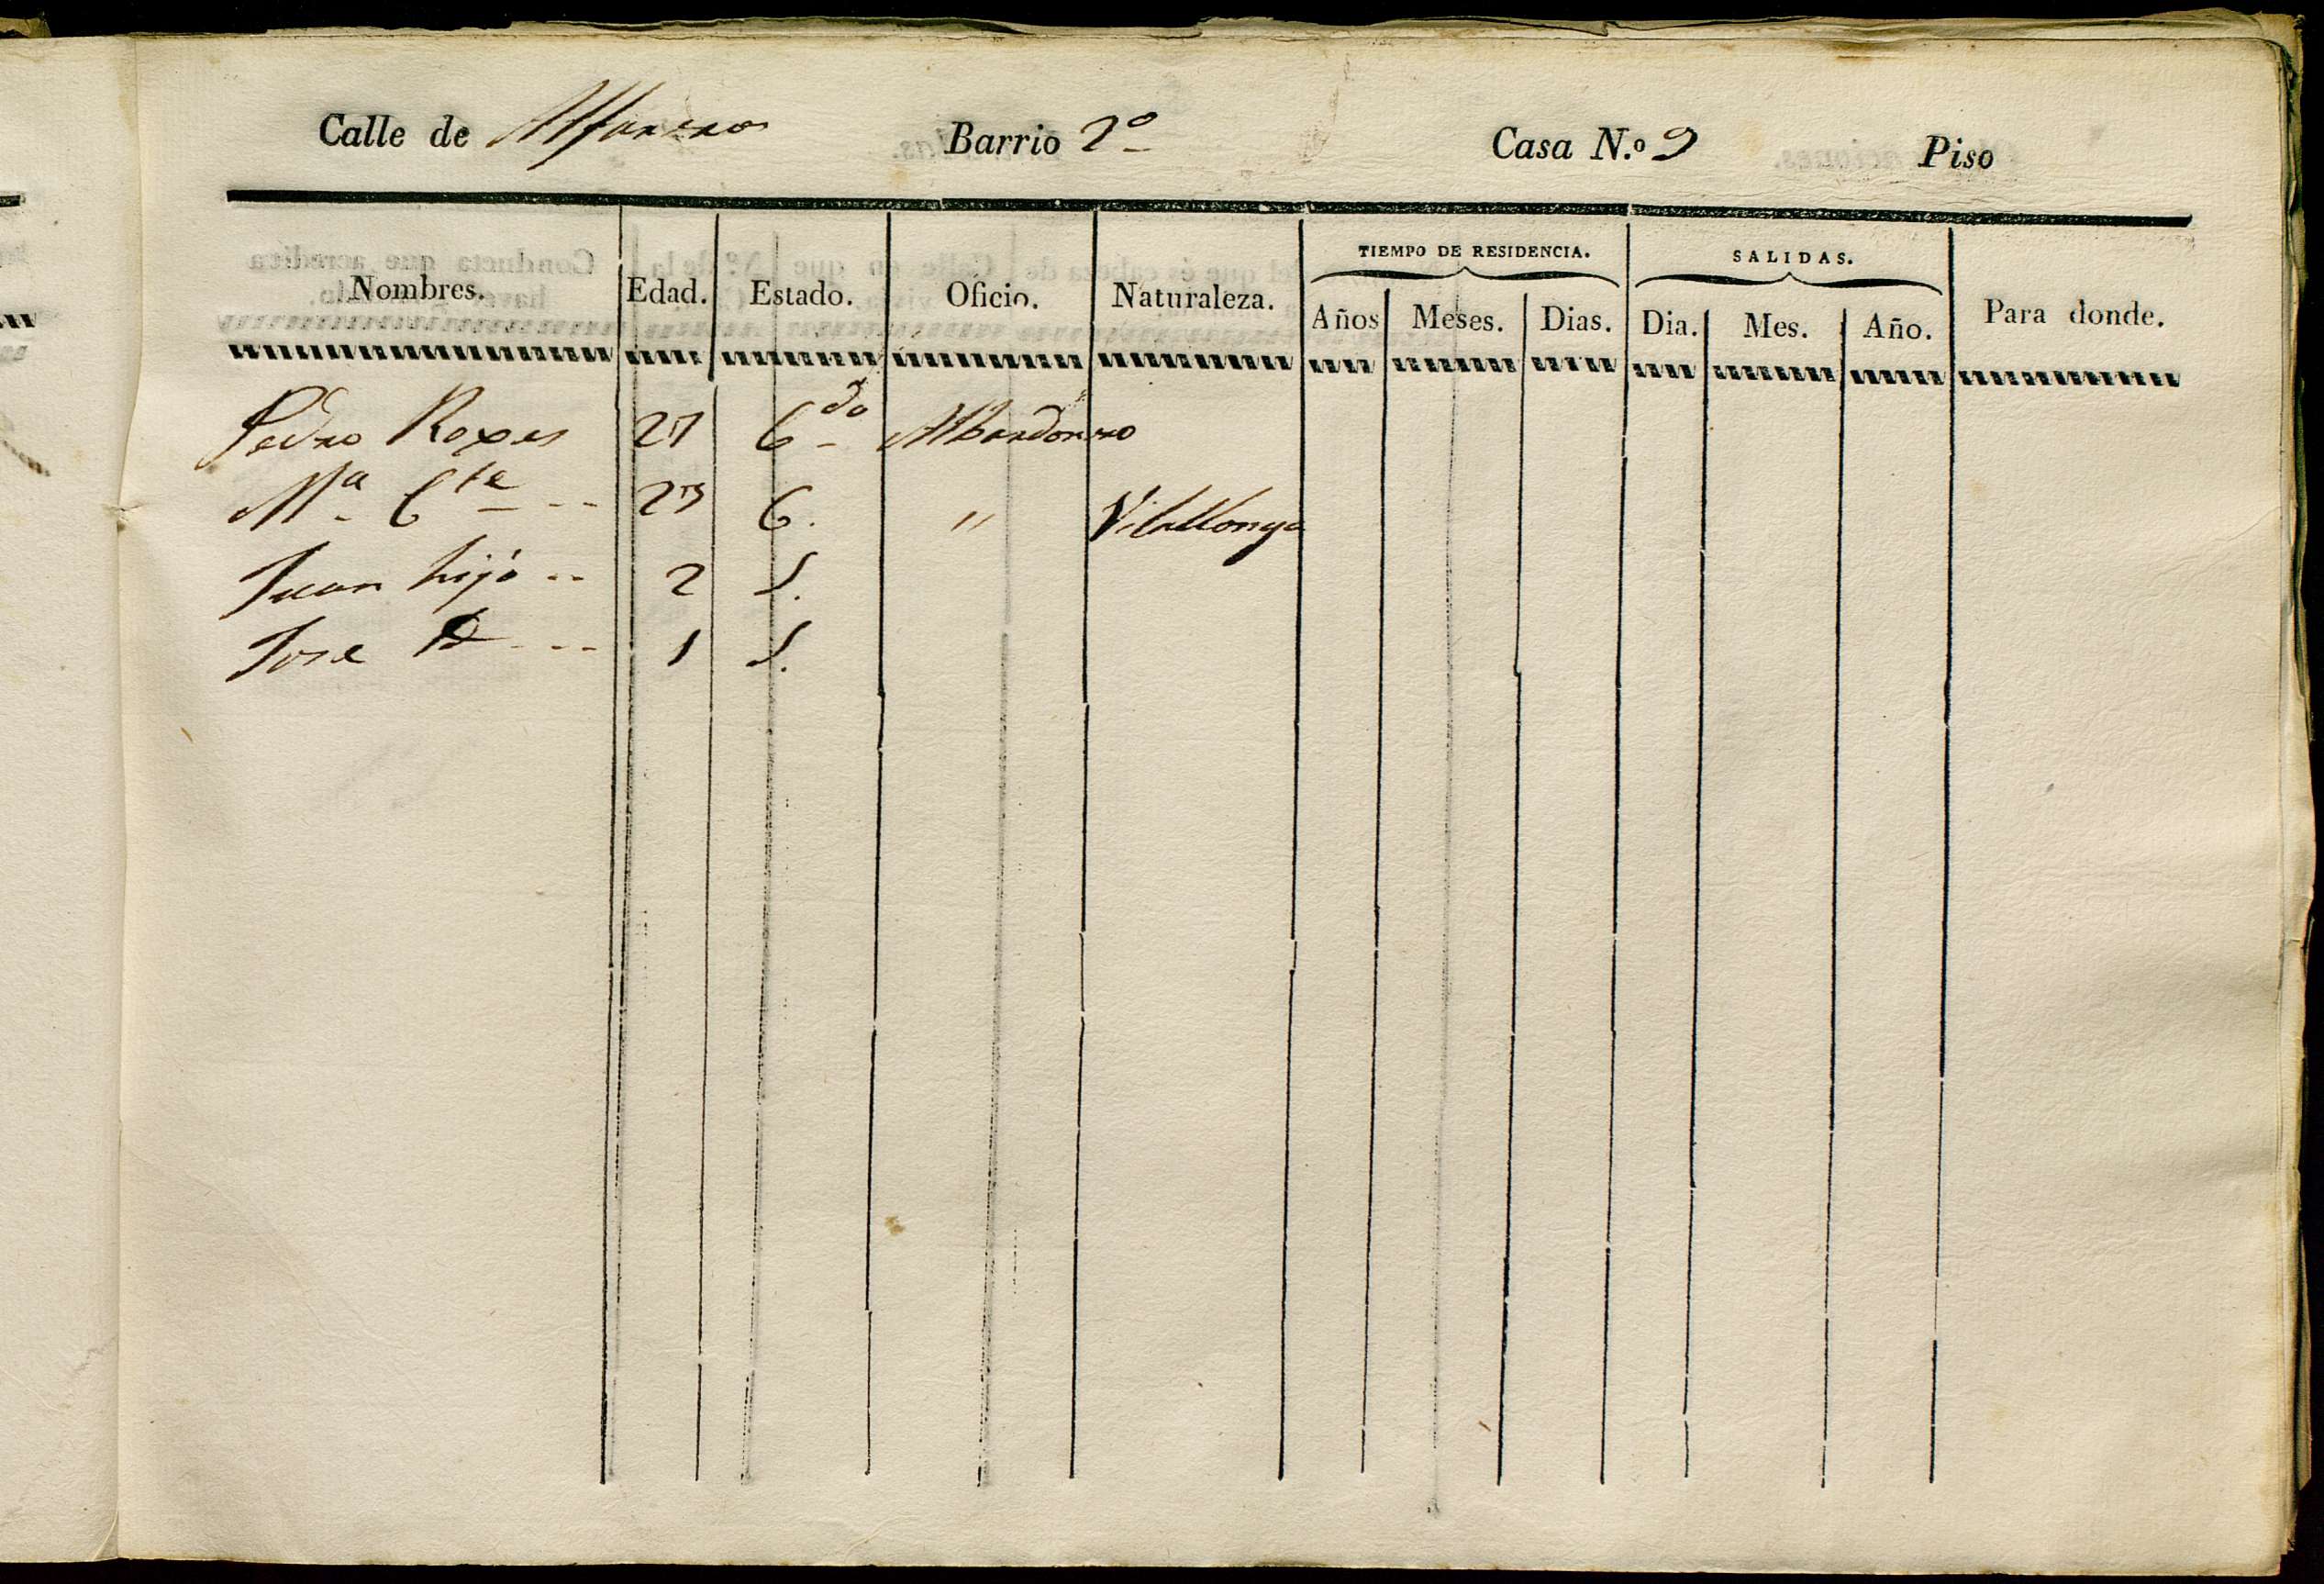 Calle de Alfareros Barrio 2º Casa N.º 9 Piso
TIEMPO DE RESIDENCIA. SALIDAS.
Nombres. Edad. Estado. Oficio. Naturaleza. Años Meses. Dias. Dia. Mes. Año. Para donde.
Pedro Roges 27 Cdo
Mª Cte -- 27 C. " Vilallonga
Juan hijo -- 2 S.
Jose Id --- 1 S.